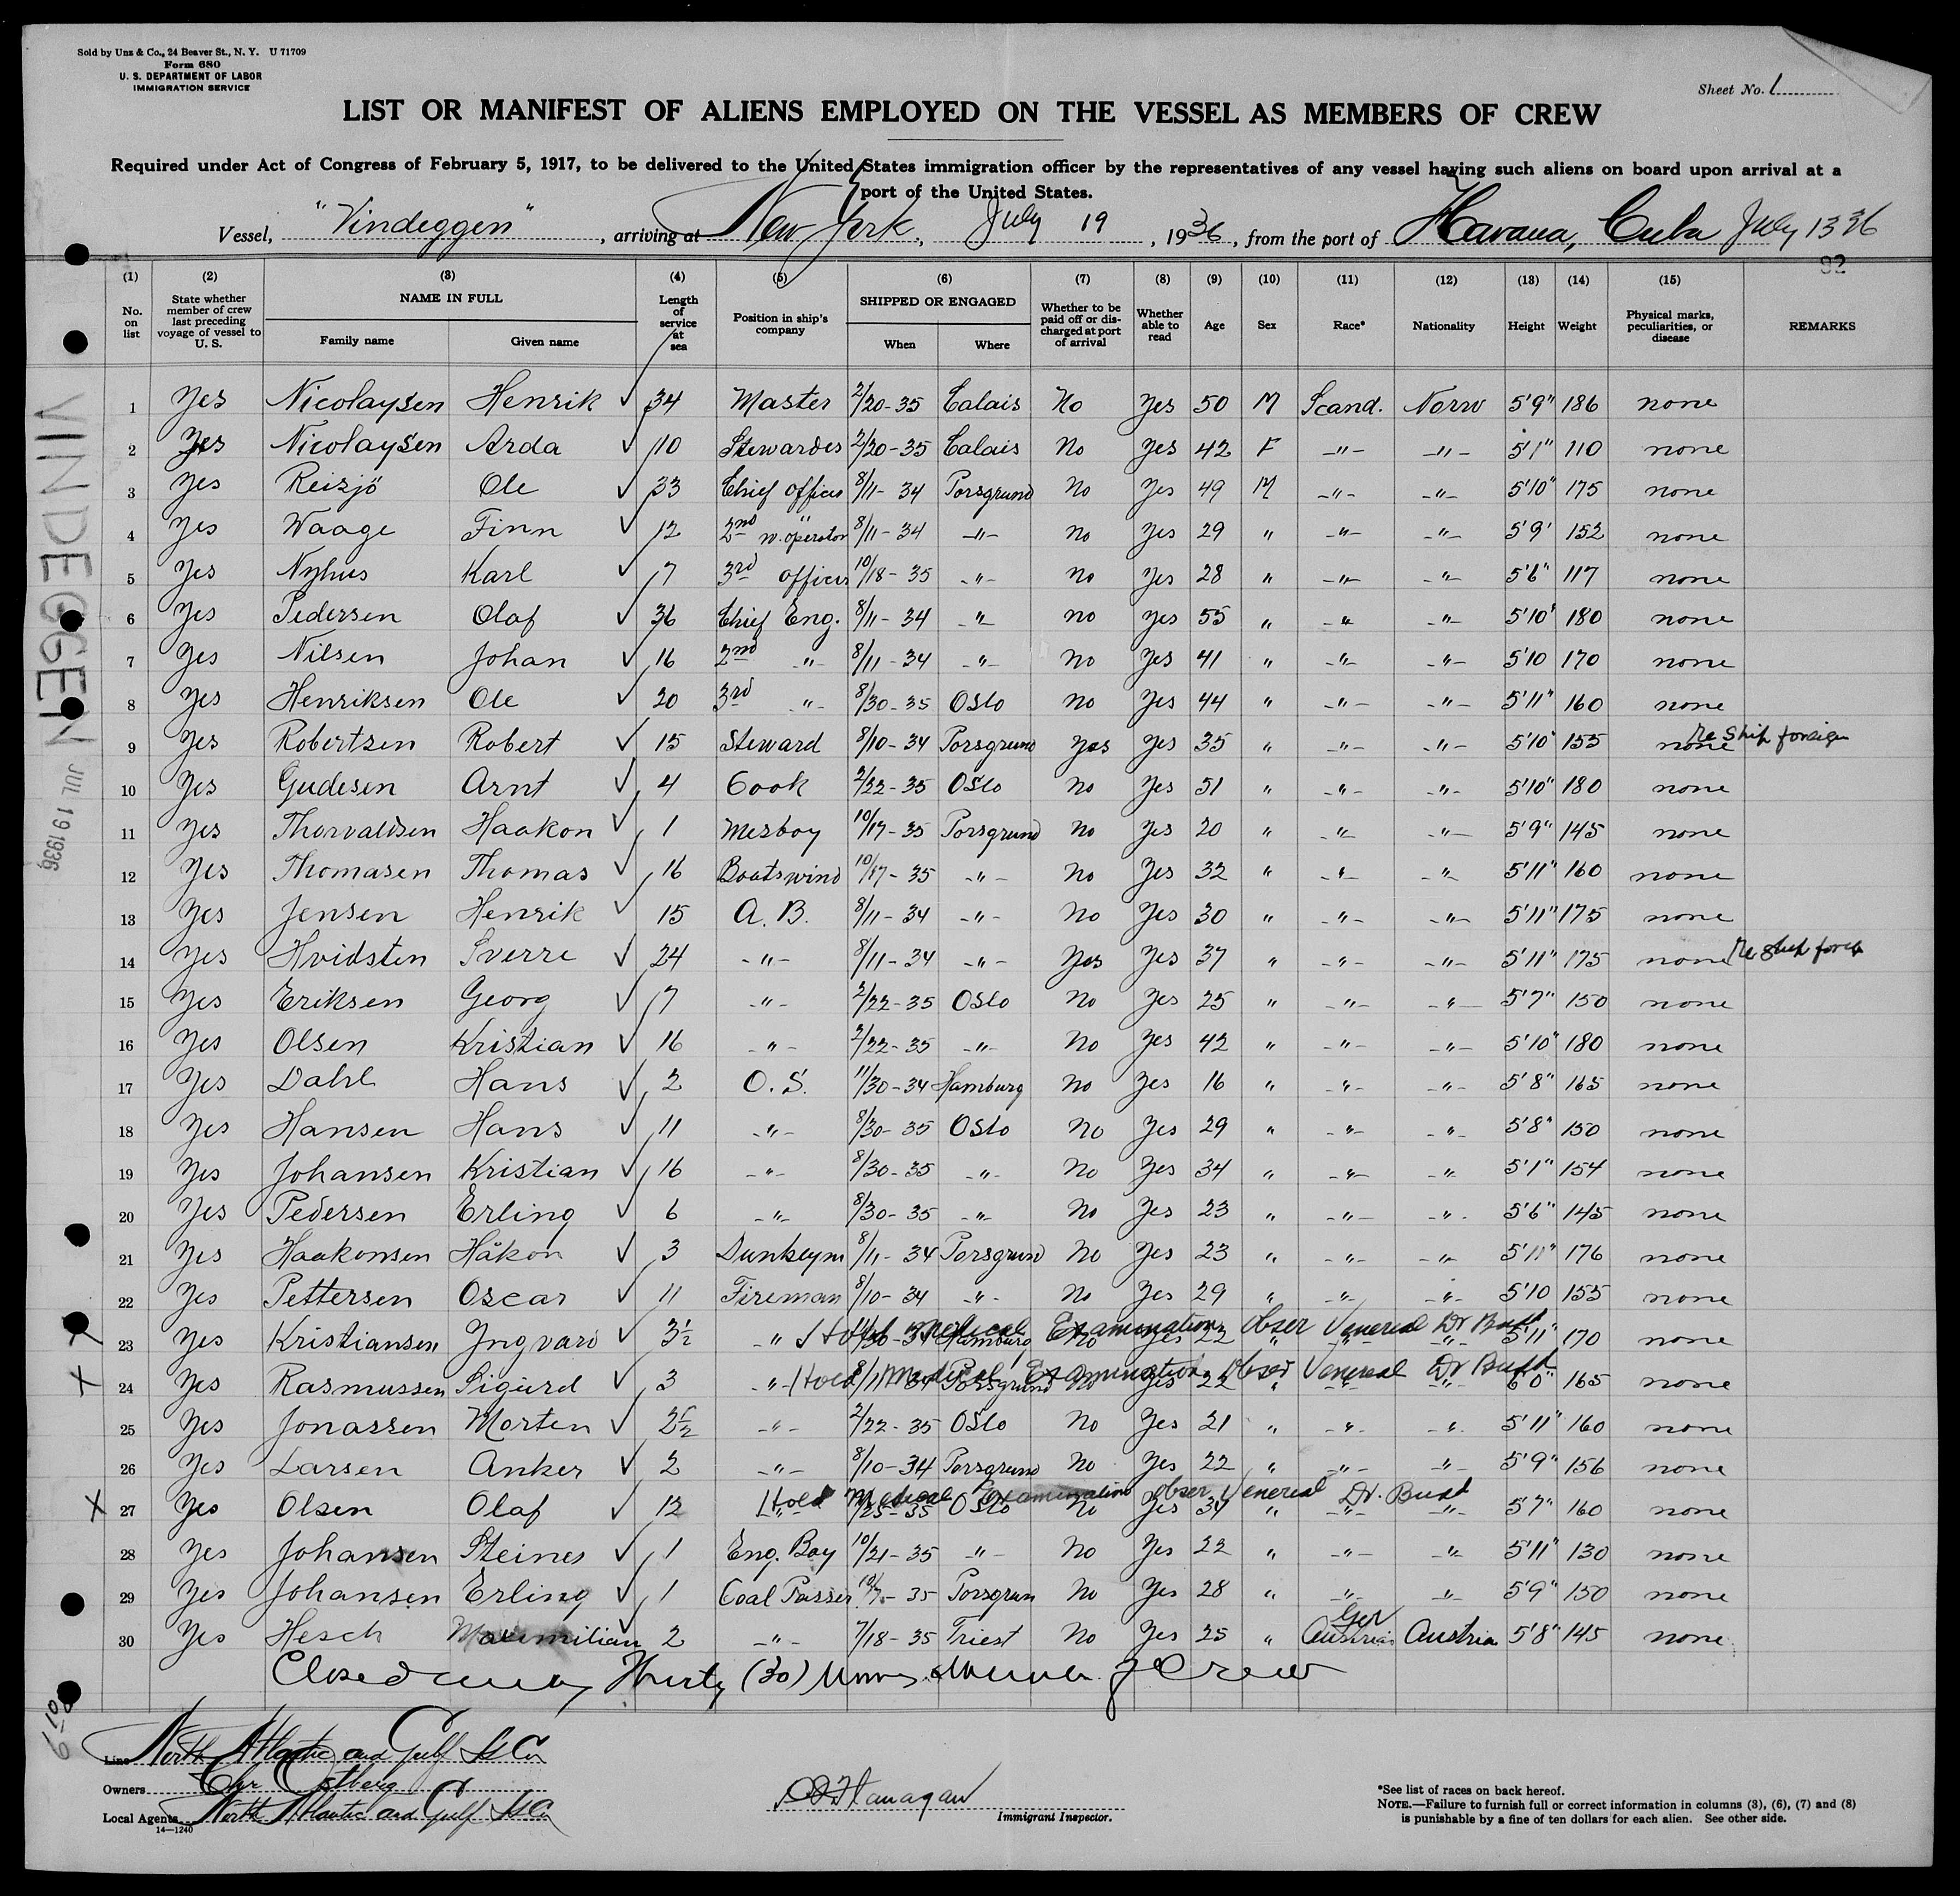 Sold by Unz & Co., 24 Beaver St., N. Y. U 71709
Form 680
U. S. DEPARTMENT OF LABOR
IMMIGRATION SERVICE
Sheet No. 1
LIST OR MANIFEST OF ALIENS EMPLOYED ON THE VESSEL AS MEMBERS OF CREW
Required under Act of Congress of February 5, 1917, to be delivered to the United States immigration officer by the representatives of any vessel having such aliens on board upon arrival at a
port of the United States.
Vessel, "Vindeggen", arriving at New York, July 19, 1936, from the port of Havana, Cuba July 13 36
92
(1) (2) (3) (4) (5) (6) (7) (8) (9) (10) (11) (12) (13) (14) (15)
No. on list State whether member of crew last preceding voyage of vessel to U. S. NAME IN FULL Family name Given name Length of service at sea Position in ship's company SHIPPED OR ENGAGED When Where Whether to be paid off or discharged at port of arrival Whether able to read Age Sex Race* Nationality Height Weight Physical marks, peculiarities, or disease REMARKS
1 Yes Nicolaysen Henrik ✓ 34 Master 2/20-35 Calais No Yes 50 M Scand. Norw 5'9" 186 none
2 Yes Nicolaysen Arda ✓ 10 Stewardes 2/20-35 Calais No Yes 42 F -"- -"- 5'1" 110 none
3 Yes Reisjö Ole ✓ 33 Chief officer 8/11-34 Porsgrund No Yes 49 M -"- -"- 5'10" 175 none
4 Yes Waage Finn ✓ 12 2nd " w. operator 8/11-34 -"- No Yes 29 " -"- -"- 5'9' 152 none
5 Yes Nyhus Karl ✓ 7 3rd officer 10/18-35 -"- No Yes 28 " -"- -"- 5'6" 117 none
6 Yes Pedersen Olaf ✓ 36 Chief Eng. 8/11-34 -"- no Yes 55 " -"- -"- 5'10" 180 none
7 Yes Nilsen Johan ✓ 16 2nd -"- 8/11-34 -"- No Yes 41 " -"- -"- 5'10 170 none
8 Yes Henriksen Ole ✓ 20 3rd -"- 8/30-35 Oslo No Yes 44 " -"- -"- 5'11" 160 none
9 Yes Robertsen Robert ✓ 15 Steward 8/10-34 Porsgrund Yes Yes 35 " -"- -"- 5'10" 155 none Re Ship foreign
10 Yes Gudesen Arnt ✓ 4 Cook 2/22-35 Oslo No Yes 51 " -"- -"- 5'10" 180 none
11 Yes Thorvaldsen Haakon ✓ 1 Mesboy 10/17-35 Porsgrund No Yes 20 " -"- -"- 5'9" 145 none
12 Yes Thomasen Thomas ✓ 16 Boatswind 10/17-35 -"- No Yes 32 " -"- -"- 5'11" 160 none
13 Yes Jensen Henrik ✓ 15 A. B. 8/11-34 -"- No Yes 30 " -"- -"- 5'11" 175 none
14 Yes Hvidsten Sverre ✓ 24 -"- 8/11-34 -"- Yes Yes 37 " -"- -"- 5'11" 175 none Re ship
15 Yes Eriksen Georg ✓ 7 -"- 2/22-35 Oslo No Yes 25 " -"- -"- 5'7" 150 none
16 Yes Olsen Kristian ✓ 16 -"- 2/22-35 -"- No Yes 42 " -"- -"- 5'10" 180 none
17 Yes Dahl Hans ✓ 2 O. S. 11/30-34 Hamburg No Yes 16 " -"- -"- 5'8" 165 none
18 Yes Hansen Hans ✓ 11 -"- 8/30-35 Oslo No Yes 29 " -"- -"- 5'8" 150 none
19 Yes Johansen Kristian ✓ 16 -"- 8/30-35 -"- No Yes 34 " -"- -"- 5'1" 154 none
20 Yes Pedersen Erling ✓ 6 -"- 8/30-35 -"- No Yes 23 " -"- -"- 5'6" 145 none
21 Yes Haakonsen Håkon ✓ 3 Dunkeym 8/11-34 Porsgrund No Yes 23 " -"- -"- 5'11" 176 none
22 Yes Pettersen Oscar ✓ 11 Fireman 8/10-34 -"- No Yes 29 " -"- -"- 5'10 155 none
Hold Medical Examination Obser Venereal Dr
23 Yes Kristiansen Yngvard ✓ 3½ " 11/30-34 Hamburg No Yes 22 " -"- -"- 5'11" 170 none
Hold Medical Examination Obser Venereal Dr
24 Yes Rasmussen Sigurd ✓ 3 -"- 8/11-34 Porsgrund No Yes 22 " 6'0" 165 none
25 Yes Jonassen Morten ✓ 2½ -"- 2/22-35 Oslo No Yes 21 " -"- " 5'11" 160 none
26 Yes Larsen Anker ✓ 2 -"- 8/10-34 Porsgrund No Yes 22 " -"- -"- 5'9" 156 none
Hold Medical Examination Obser Venereal Dr.
27 Yes Olsen Olaf ✓ 12 -"- Oslo No Yes " -"- -"- 5'7" 160 none
28 Yes Johansen Steines ✓ 1 Eng. Boy 10/21-35 -"- No Yes 22 " -"- -"- 5'11" 130 none
29 Yes Johansen Erling ✓ 1 Coal Passer 35 Porsgrun No Yes 28 " -"- -"- 5'9" 150 none
30 Yes Hesch Maximilian 2 -"- 7/18-35 Triest No Yes 25 " Ger Austria 5'8" 145 none
Closed Thirty (30) Crew
Line North Atlantic and Gulf SS Co
Owners Chr Ostberg
Local Agents North Atlantic and Gulf SS Co
14—1240
Flanagan
Immigrant Inspector.
*See list of races on back hereof.
NOTE.—Failure to furnish full or correct information in columns (3), (6), (7) and (8)
is punishable by a fine of ten dollars for each alien. See other side.
VINDEGGEN
JUL 19 1936